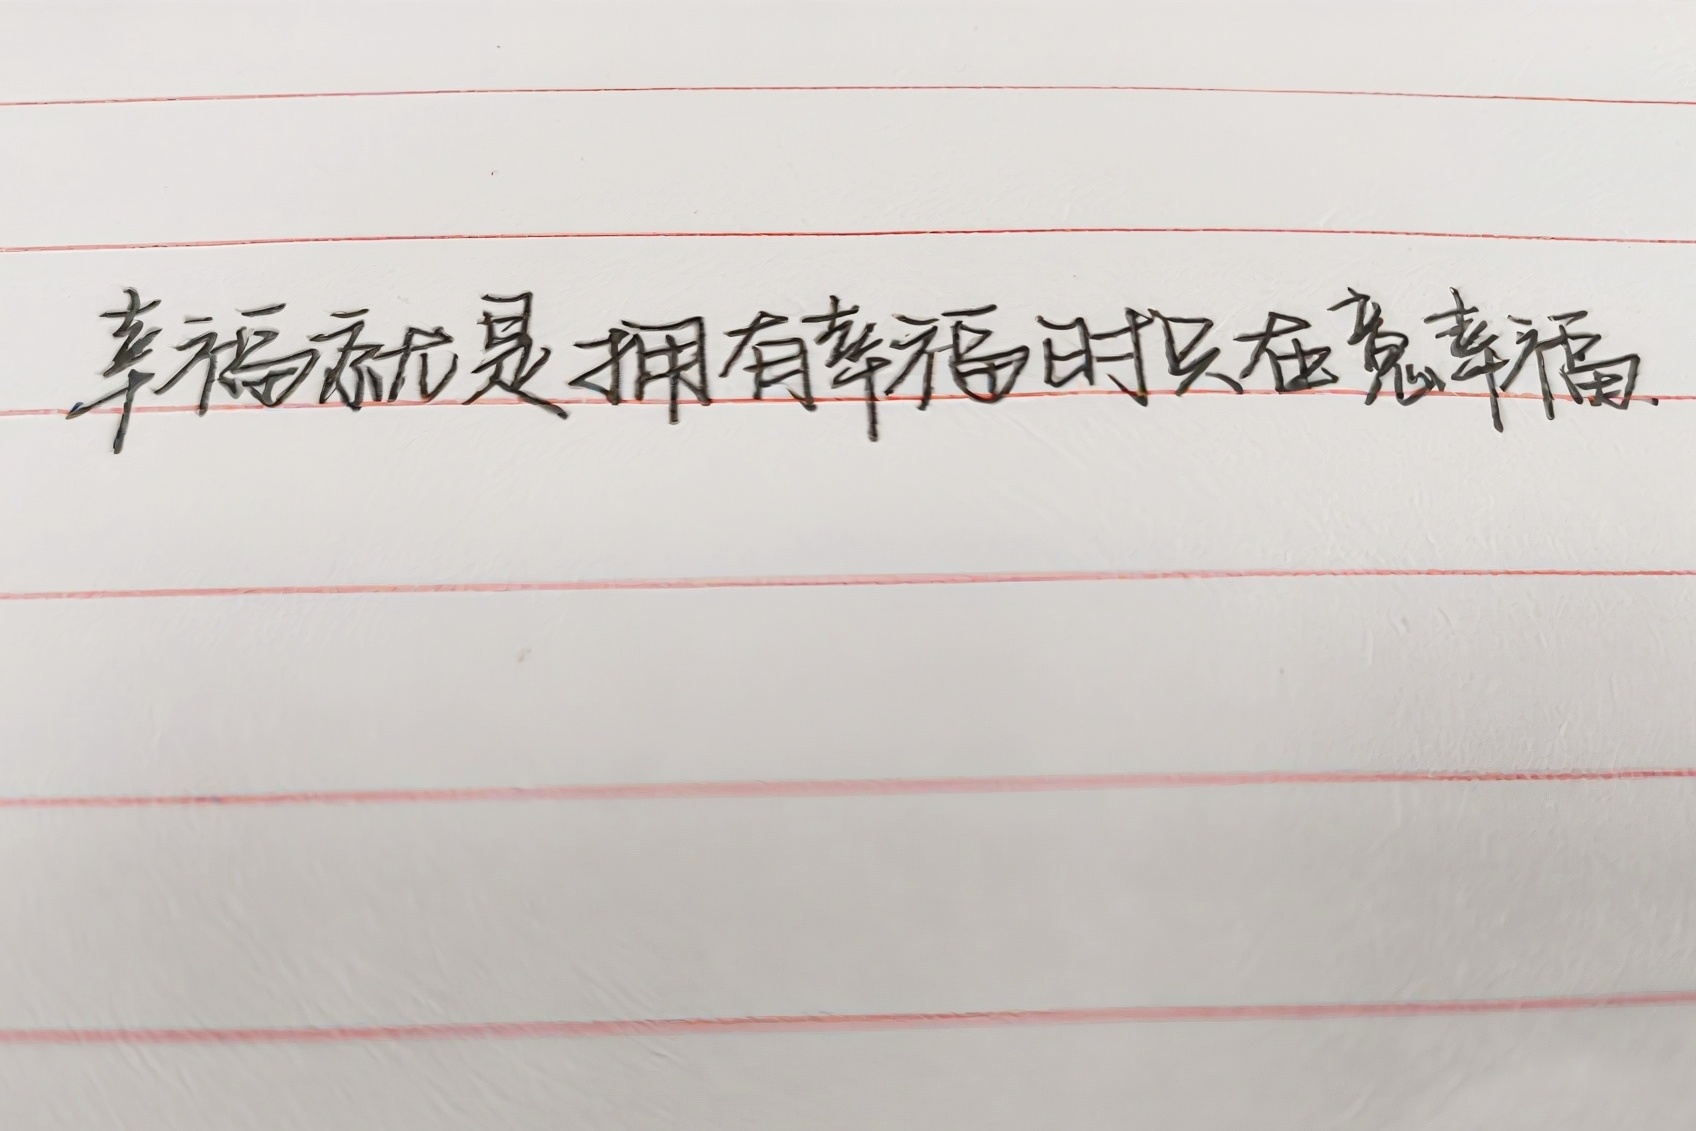 幸福就是拥有幸福时只在意幸福.